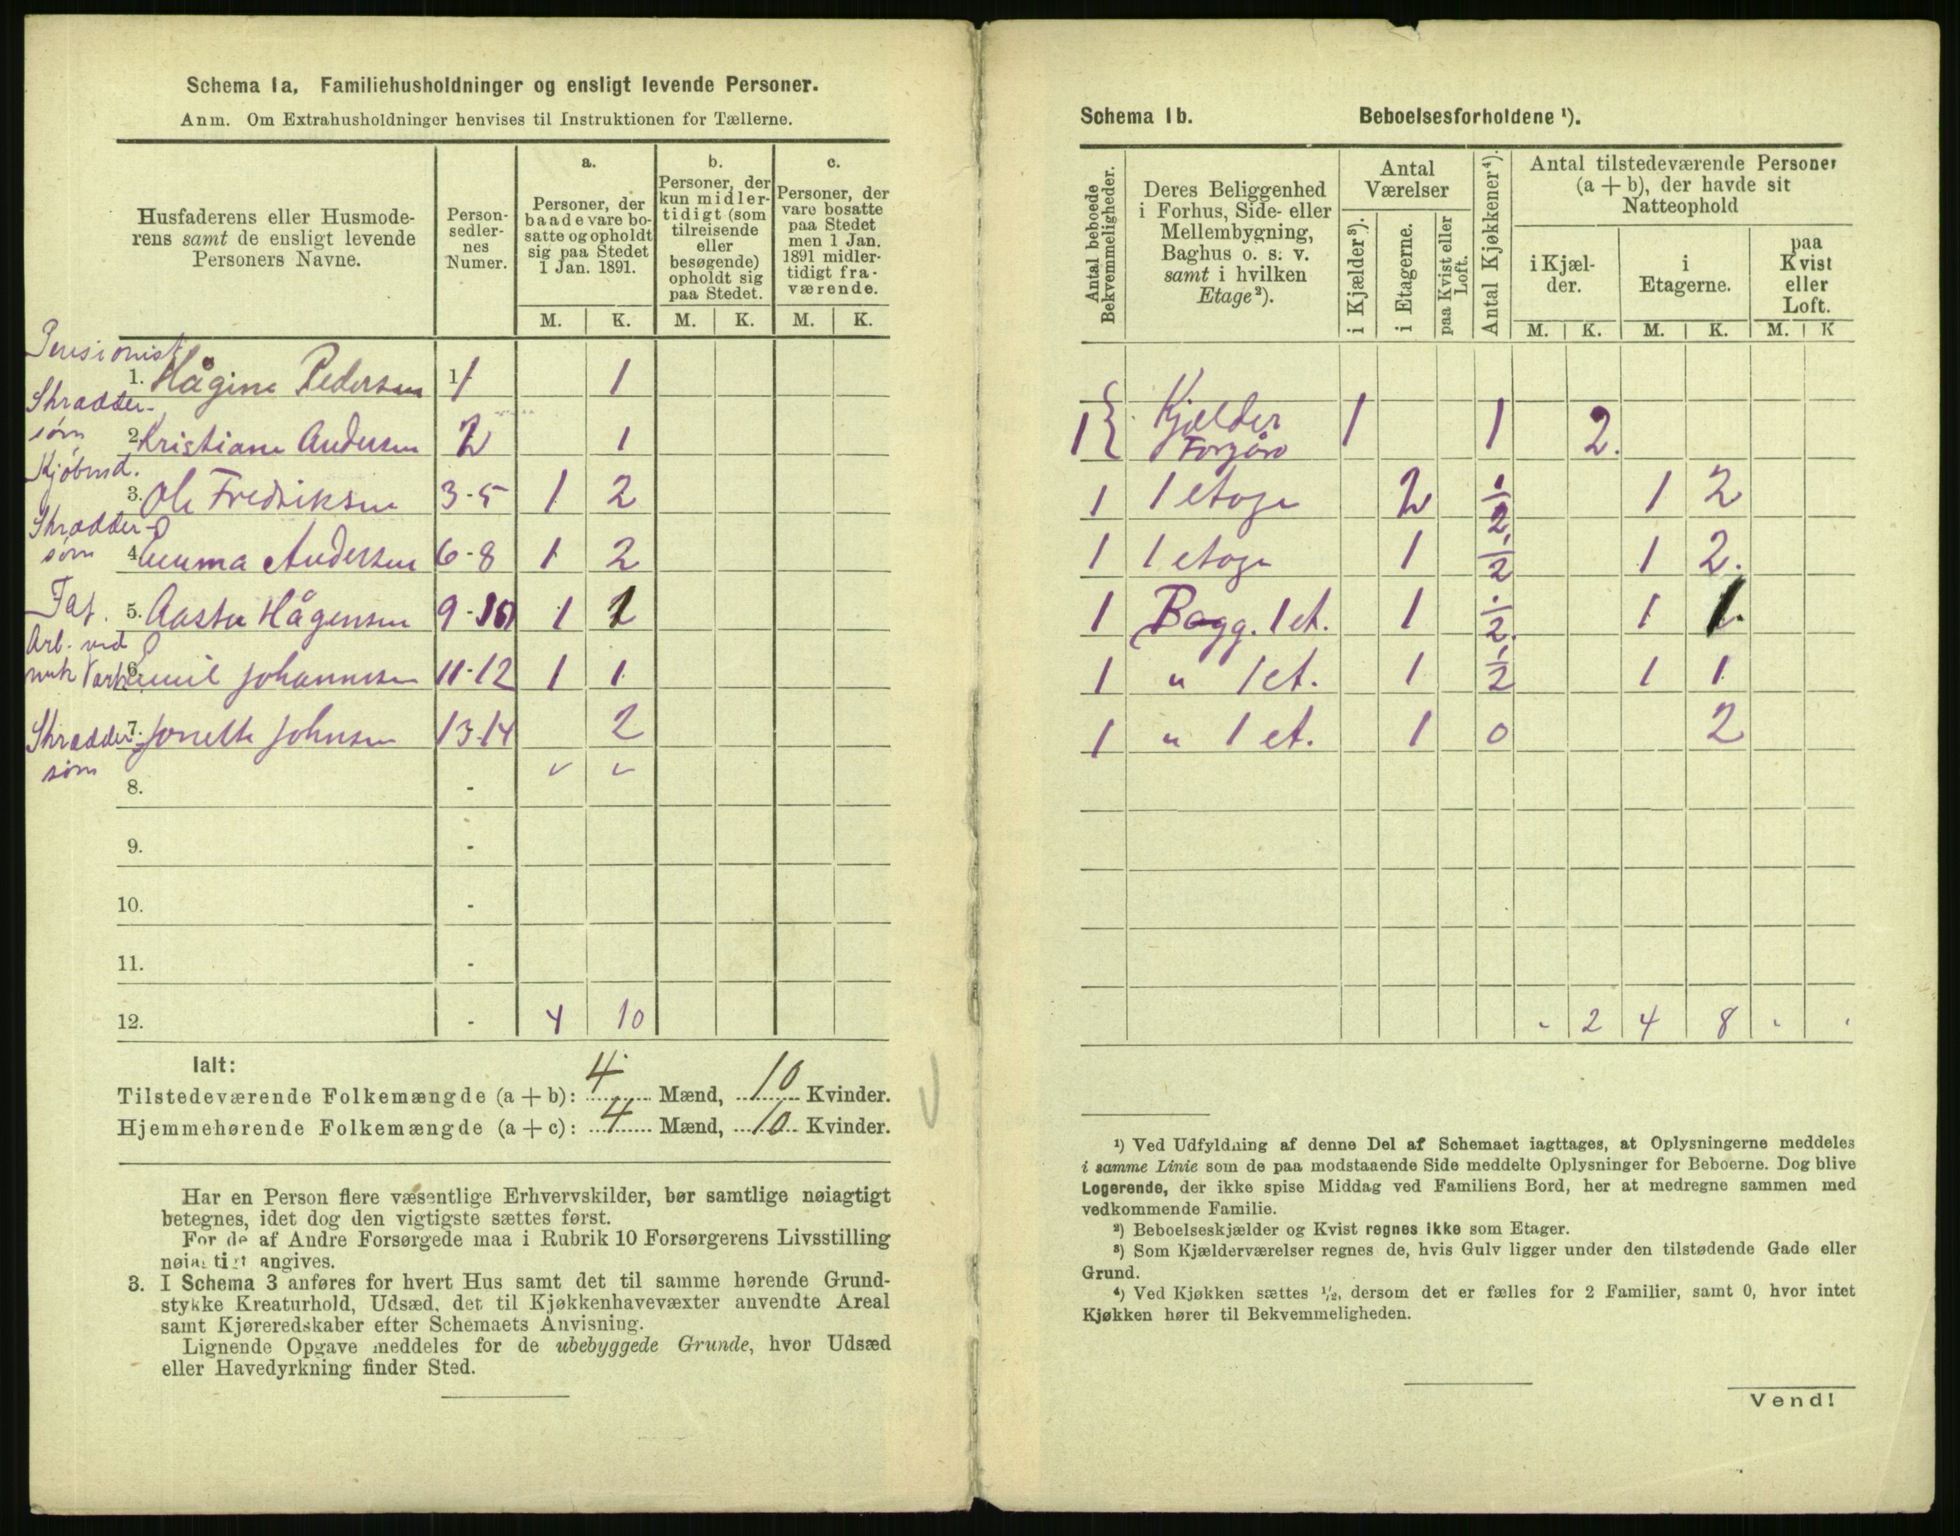 Schema 1a, Familiehusholdninger og ensligt levende Personer.
Anm. Om Extrahusholdninger henvises til Instruktionen for Tællerne.
Husfaderens eller Husmoderens samt de ensligt levende Personers Navne.
Person-sedler-nes Numer.
a.
Personer, der baade vare bosatte og opholdt sig paa Stedet 1 Jan. 1891.
b.
Personer, der kun midlertidigt (som tilreisende eller besøgende) opholdt sig paa Stedet.
c.
Personer, der vare bosatte paa Stedet men 1 Jan. 1891 midlertidigt fraværende.
M. K. M. K. M. K.
Pensionist
1. Hågine Pedersen 1 1
Skrædder-
søm
2. Kristiane Andersen 2 1
Kjøbmd.
3. Ole Fredriksen 3-5 1 2
Skrædder-
søm
4. Emma Andersen 6-8 1 2
Fat.
5. Aasta Hågensen 9-10 1 1
Arb. ved
mek Værk
6. Emil Johannesen 11-12 1 1
Skrædder
søm
7. Jonette Johnsen 13-14 2
8. -
9. -
10. -
11. -
12. - 4 10
Ialt:
Tilstedeværende Folkemængde (a + b): 4 Mænd, 10 Kvinder.
Hjemmehørende Folkemængde (a + c): 4 Mænd, 10 Kvinder.
Har en Person flere væsentlige Erhvervskilder, bør samtlige nøiagtigt
betegnes, idet dog den vigtigste sættes først.
For de af Andre Forsørgede maa i Rubrik 10 Forsørgerens Livsstilling
nøiagtigt angives.
3. I Schema 3 anføres for hvert Hus samt det til samme hørende Grund-
stykke Kreaturhold, Udsæd, det til Kjøkkenhavevæxter anvendte Areal
samt Kjøreredskaber efter Schemaets Anvisning.
Lignende Opgave meddeles for de ubebyggede Grunde, hvor Udsæd
eller Havedyrkning finder Sted.
Schema 1b. Beboelsesforholdene ¹).
Antal beboede Bekvemmeligheder.
Deres Beliggenhed i Forhus, Side- eller Mellembygning, Baghus o. s. v. samt i hvilken Etage²).
Antal Værelser
i Kjælder³).
i Etagerne.
paa Kvist eller Loft.
Antal Kjøkkener⁴).
Antal tilstedeværende Personer (a + b), der havde sit Natteophold
i Kjæl-der.
i Etagerne.
paa Kvist eller Loft.
M. K. M. K. M. K
1 { Kjælder 1 1 2.
Forgård
1 1 etage 2 1/2 1 2
1 1 etage 1 1/2 1 2.
1 Bagg. 1 et. 1 1/2. 1 1.
1 " 1 et. 1 1/2 1 1
1 " 1 et. 1 0 2
- 2 4 8 - -
¹) Ved Udfyldning af denne Del af Schemaet iagttages, at Oplysningerne meddeles
i samme Linie som de paa modstaaende Side meddelte Oplysninger for Beboerne. Dog blive
Logerende, der ikke spise Middag ved Familiens Bord, her at medregne sammen med
vedkommende Familie.
²) Beboelseskjælder og Kvist regnes ikke som Etager.
³) Som Kjælderværelser regnes de, hvis Gulv ligger under den tilstødende Gade eller
Grund.
⁴) Ved Kjøkken sættes ½, dersom det er fælles for 2 Familier, samt 0, hvor intet
Kjøkken hører til Bekvemmeligheden.
Vend!